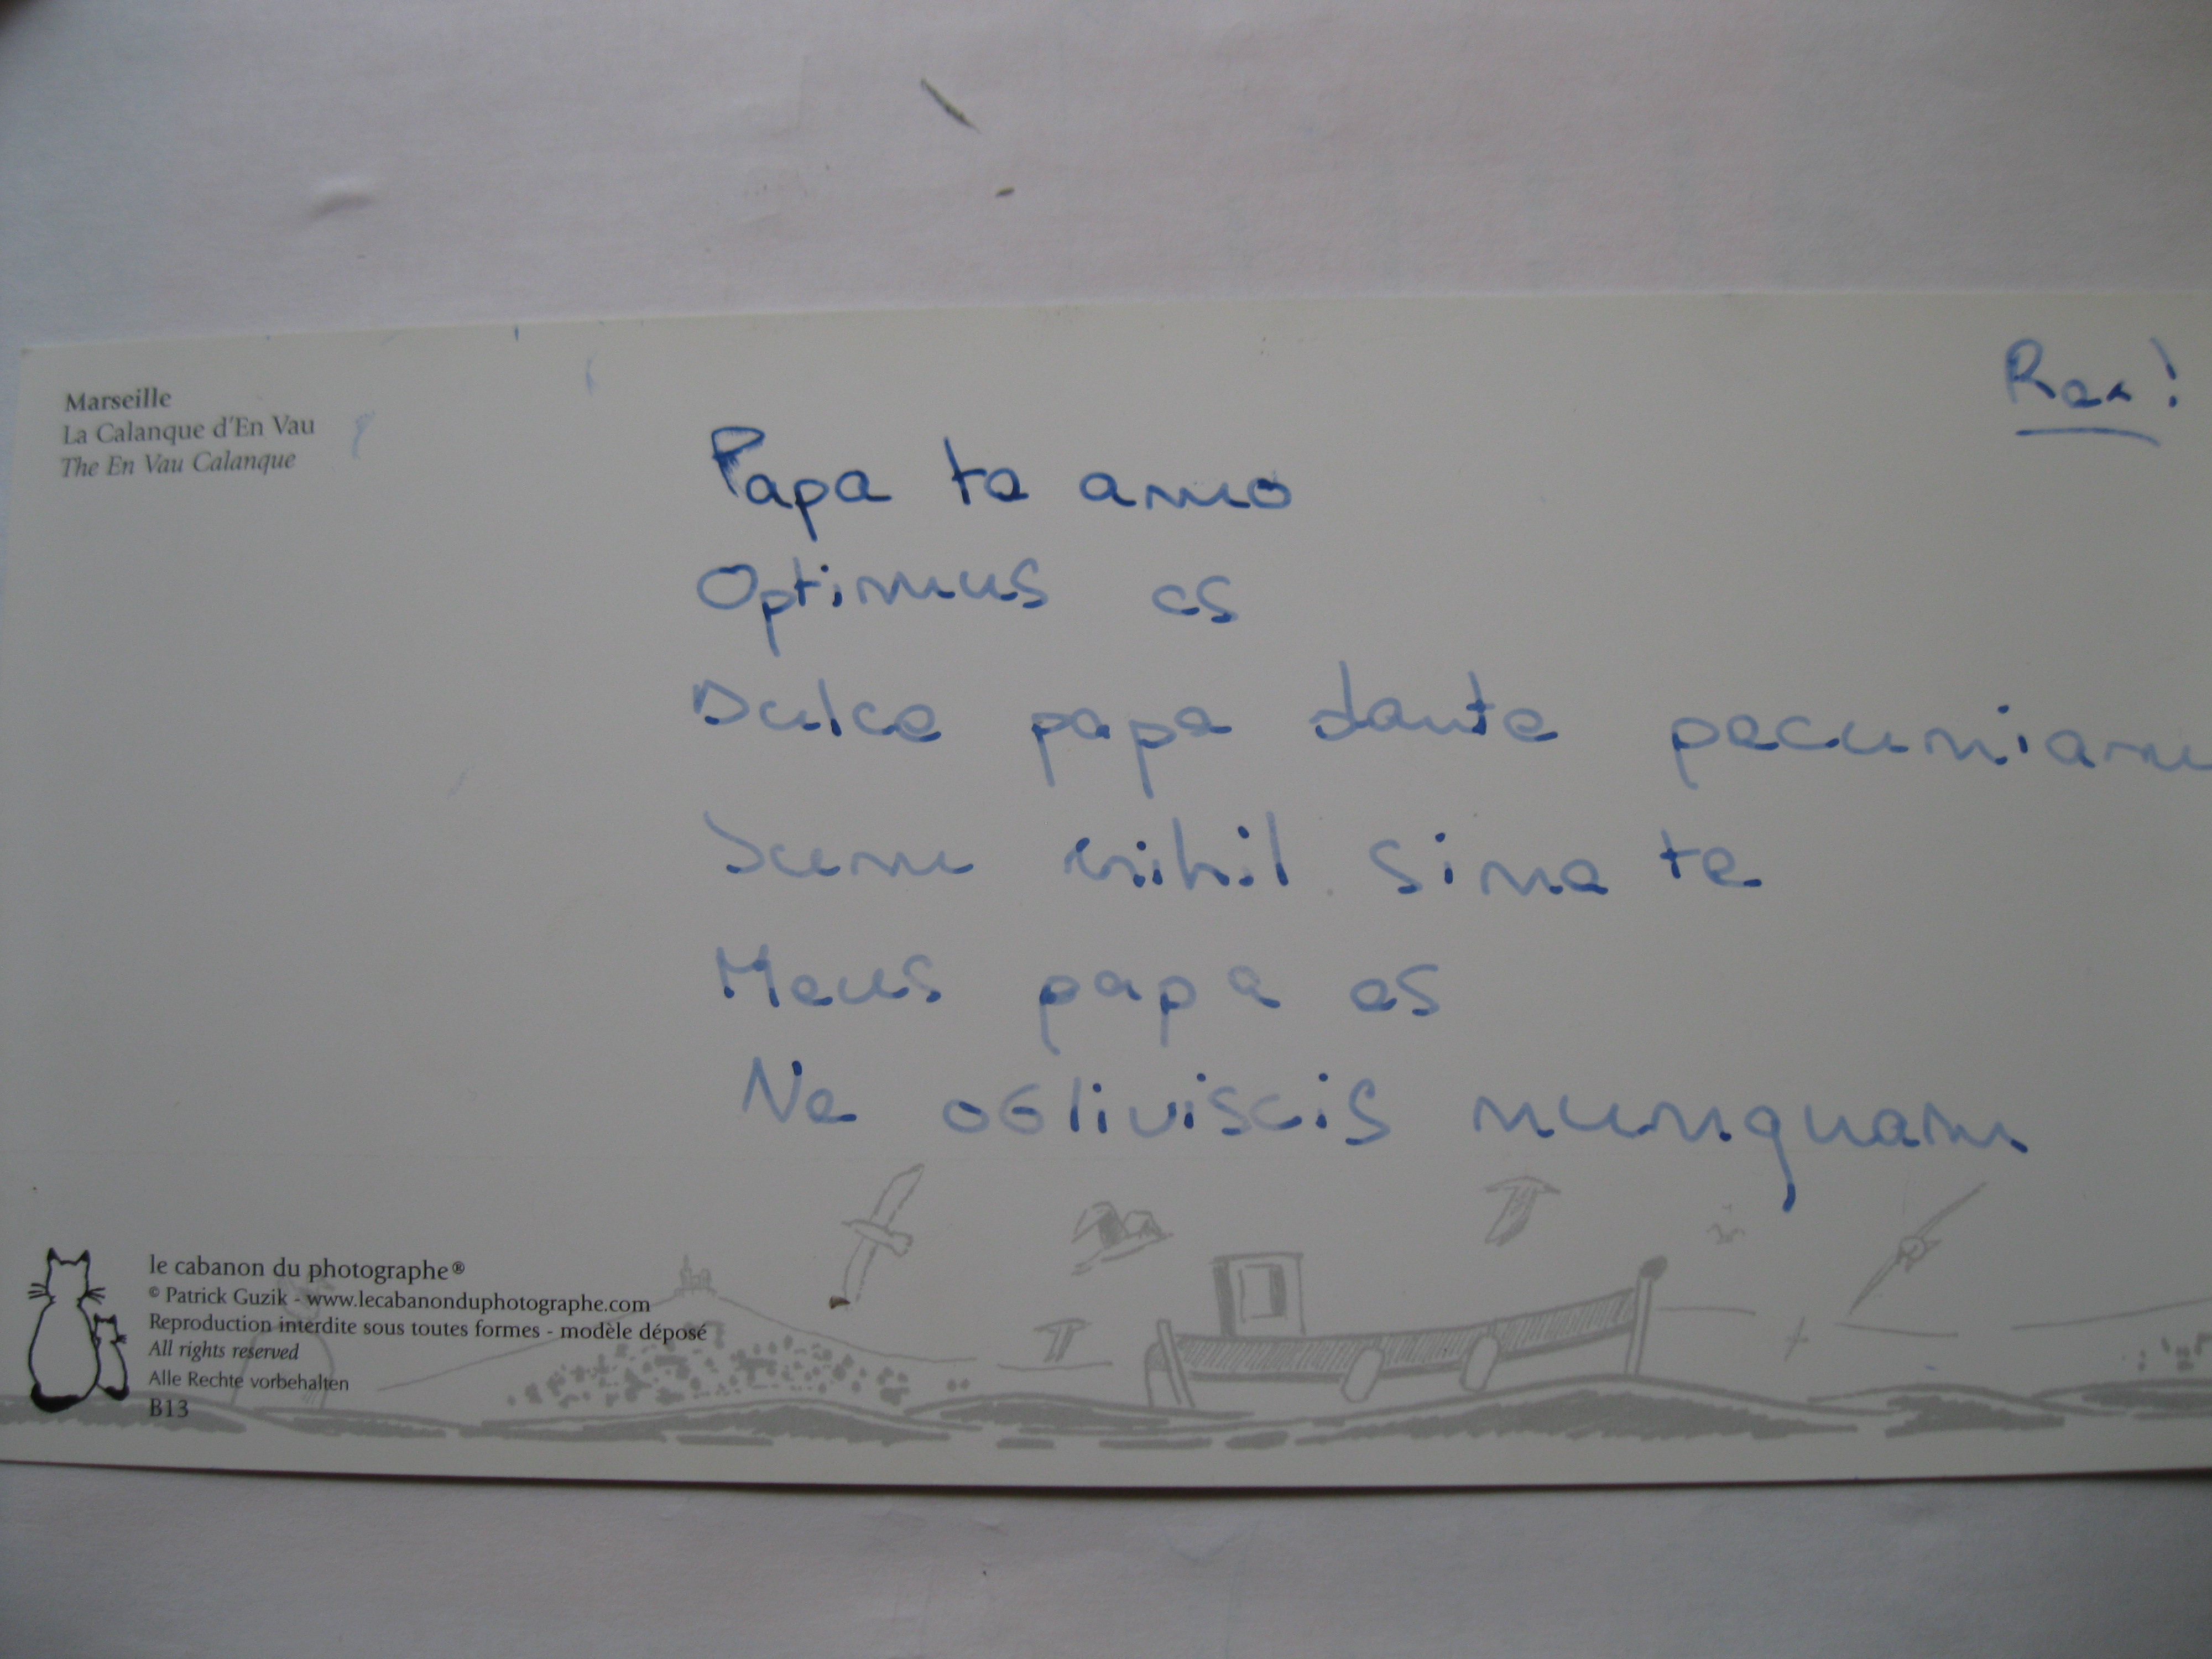 Marseille
La Calanque d'En Vau
The En Vau Calanque
Rex!
Papa te amo
Optimus es
Dulce papa dante pecuniam
Sum nihil sine te
Meus papa es
Ne obliviscis nunquam
le cabanon du photographe®
© Patrick Guzik - www.lecabanonduphotographe.com
Reproduction interdite sous toutes formes - modèle déposé
All rights reserved
Alle Rechte vorbehalten
B13